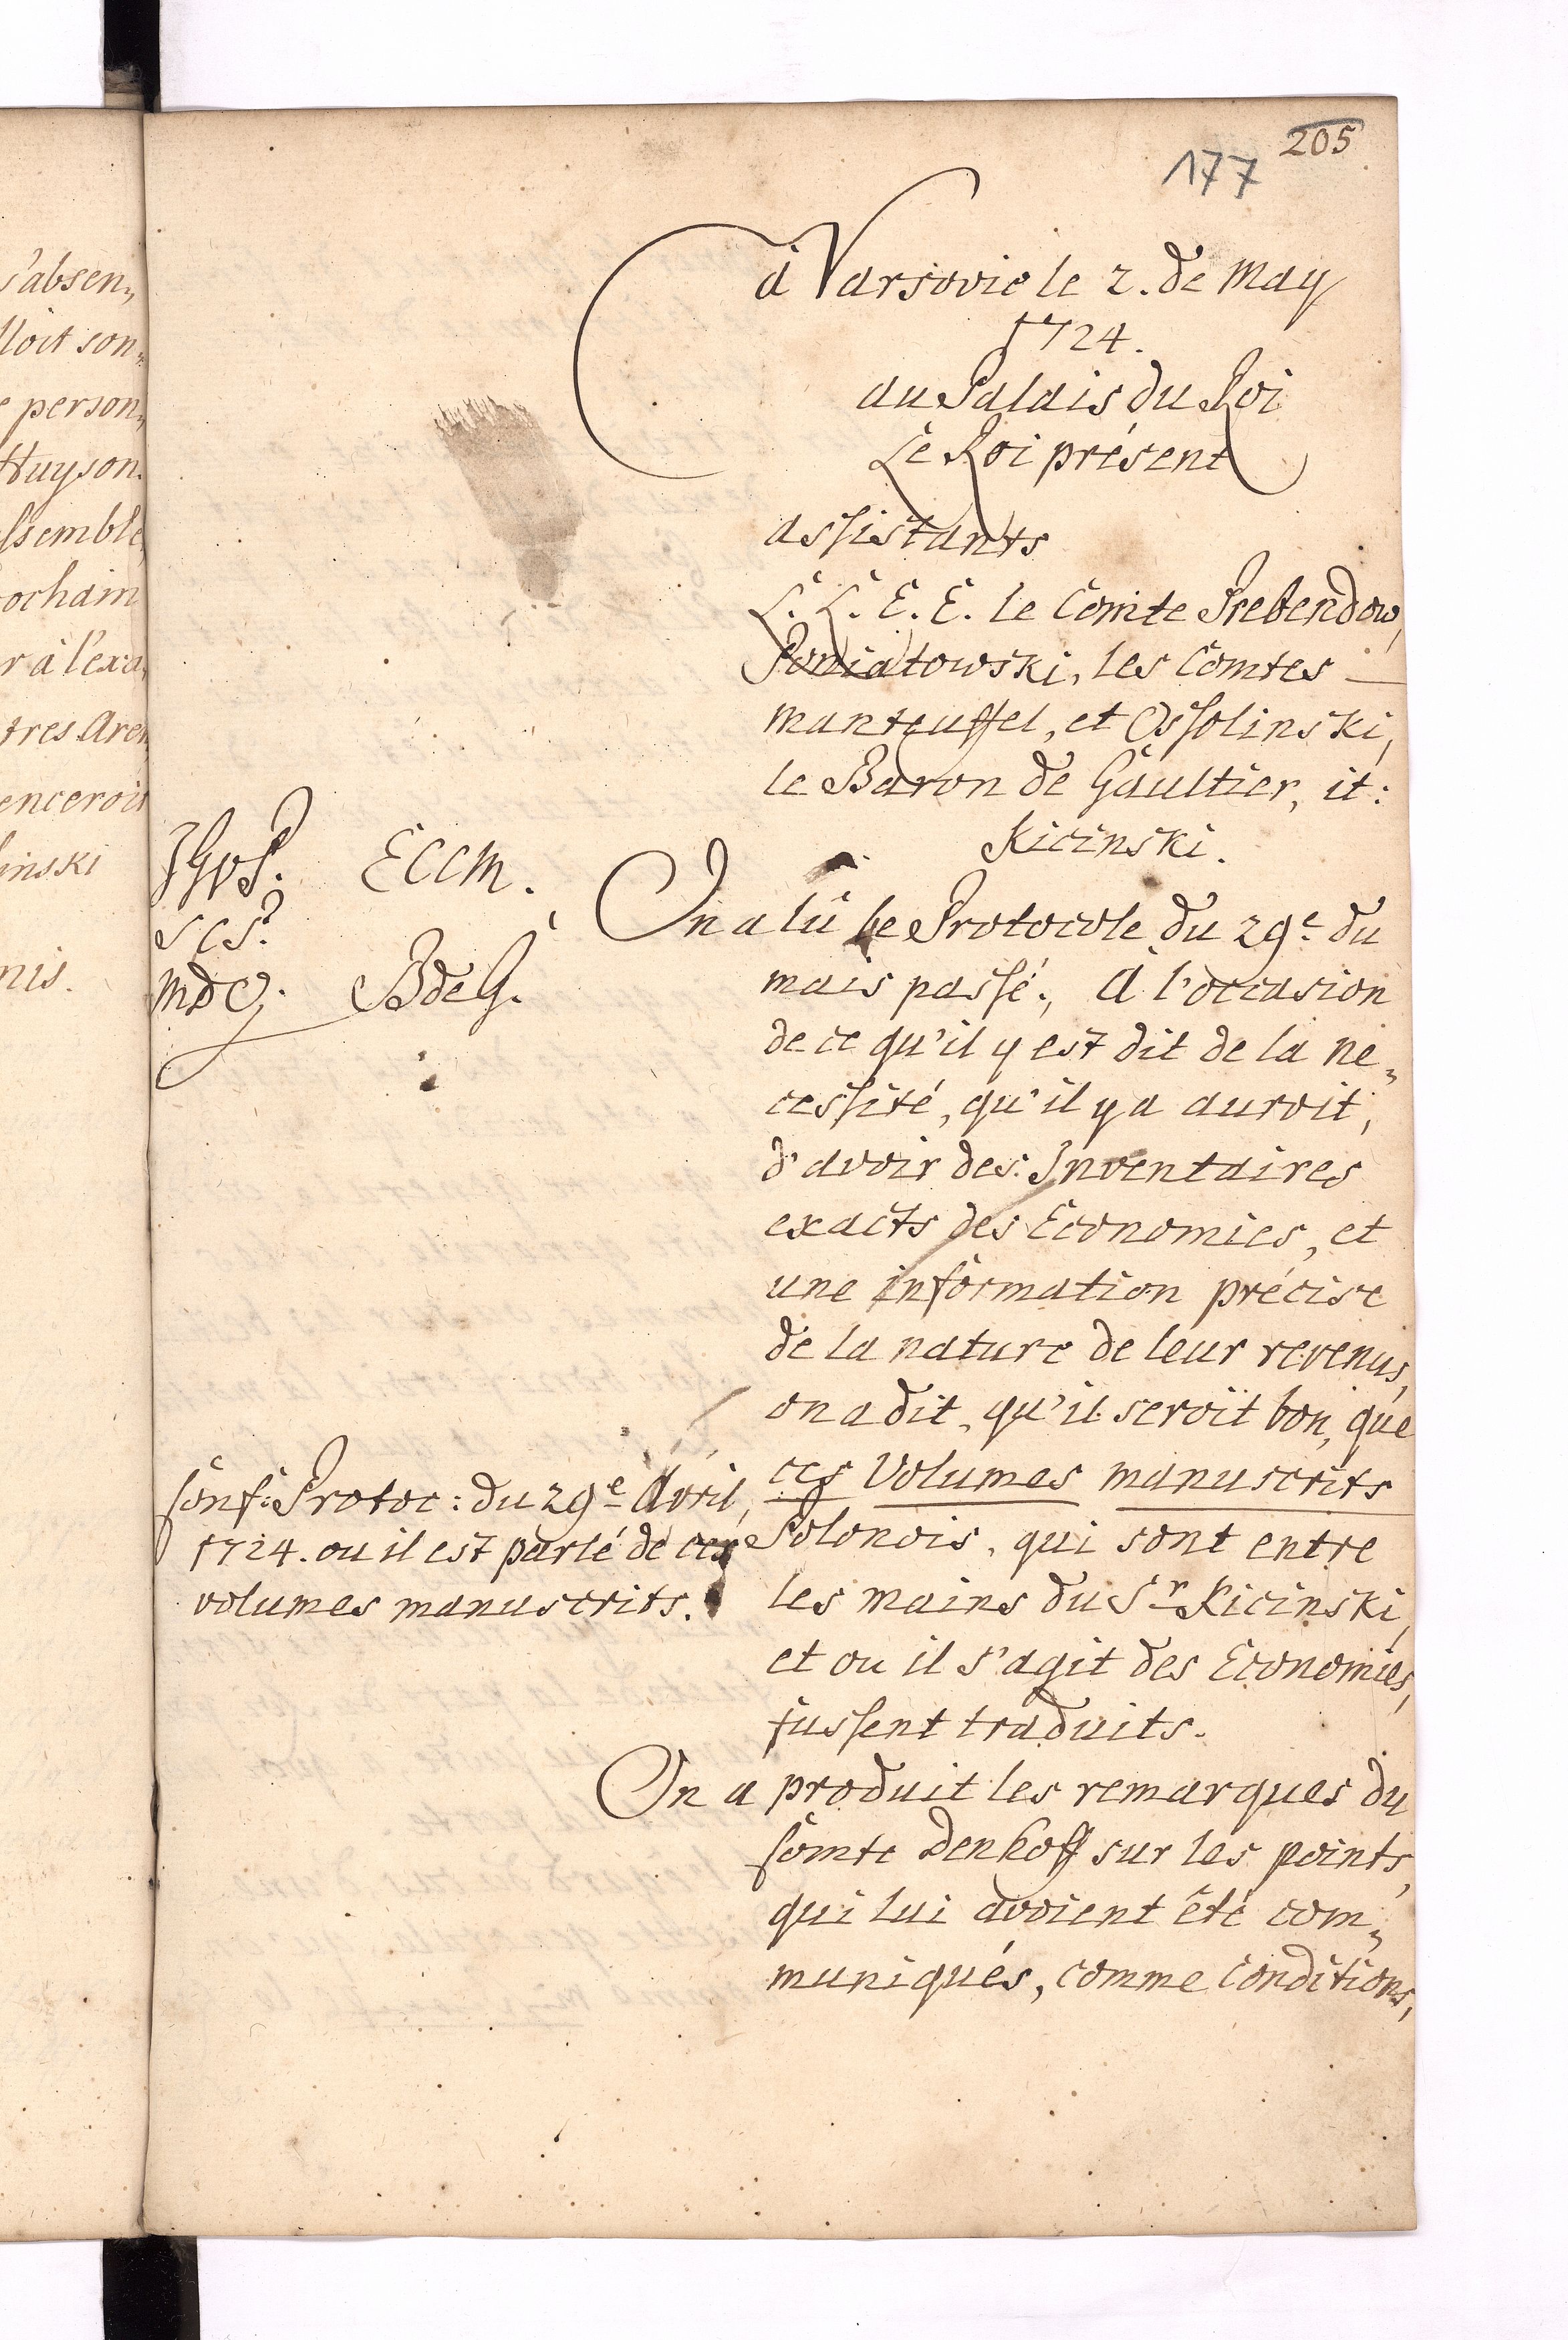 205
177
à Varsovie le 2. de May
1724.
au Palais du Roi
Le Roi présent
assistants
L. L. E. E. le Comte Prebendow,
Poniatowski, les Comtes
Manteuffel, et Ossolinski,
le Baron de Gaultier, it:
Kicinski.
ECCM.
SCS.
MDC.
BdeG.
On a lû le Protocole du 29e du
mais passé., A l'occasion
de ce qu'il y est dit de la né„
cessité, qu'il y a auroit,
d'avoir des Inventaires
exacts des Economies, et
une information précise
de la nature de leur revenus,
on a dit, qu'il seroit bon, que
ces Volumes manuscrits
Polonois, qui sont entre
les mains du Sr Kicinski,
et ou il s'agit des Economies,
fussent traduits.
Conf: Protoc: du 29e Avril,
1724. ou il est parlé de ces
volumes manuscrits.
On a produit les remarques du
Comte Denhoff sur les points,
qui lui avoient êté com„
muniqués, comme conditions,
s'absen„
loit son„
person„
Huyson.
ssemble
ochain
r à l'exa„
tres
enceroit
inski
nis.